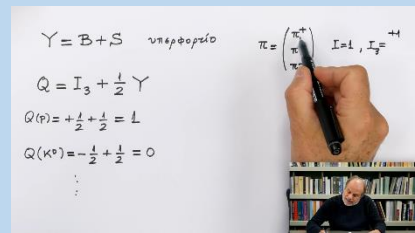 Y = B + S υπερφορτίο
Q = I₃ + ½ Y
Q(p) = +½ + ½ = 1
Q(K⁰) = -½ + ½ = 0
⋮
π = ( π⁺ π π ) I = 1 , I₃ = +1